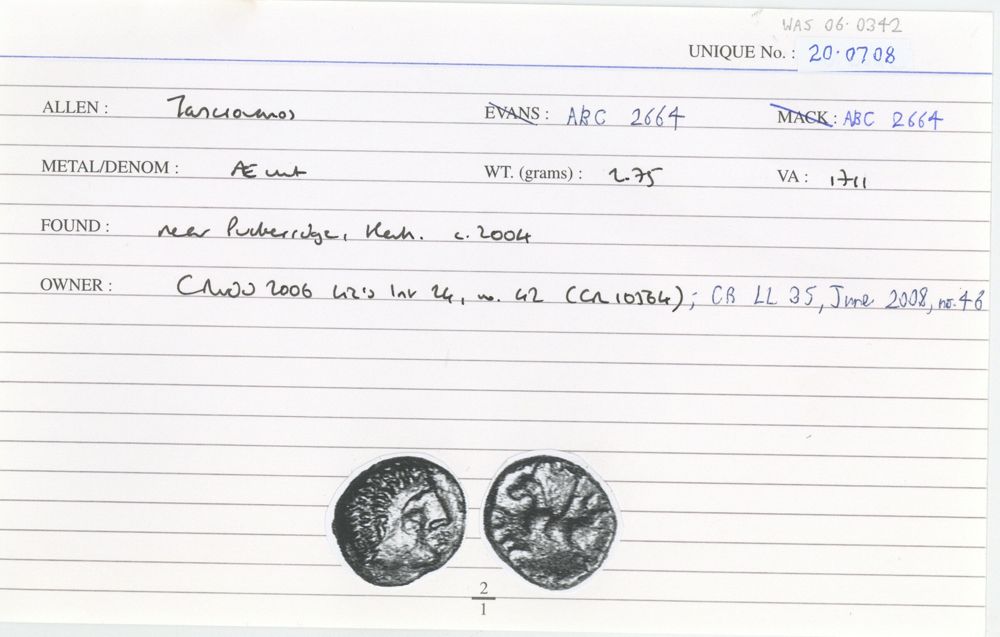 WAS 06·0342
UNIQUE No. : 20·0708
ALLEN : Tasciovanos EVANS : ABC 2664 MACK : ABC 2664
METAL/DENOM : Æ unit WT. (grams) : 2.75 VA : 1711
FOUND : near Puckeridge, Herts. c. 2004
OWNER : 2006 no. 42 ; CR LL 35, June 2008, no. 46
2
1